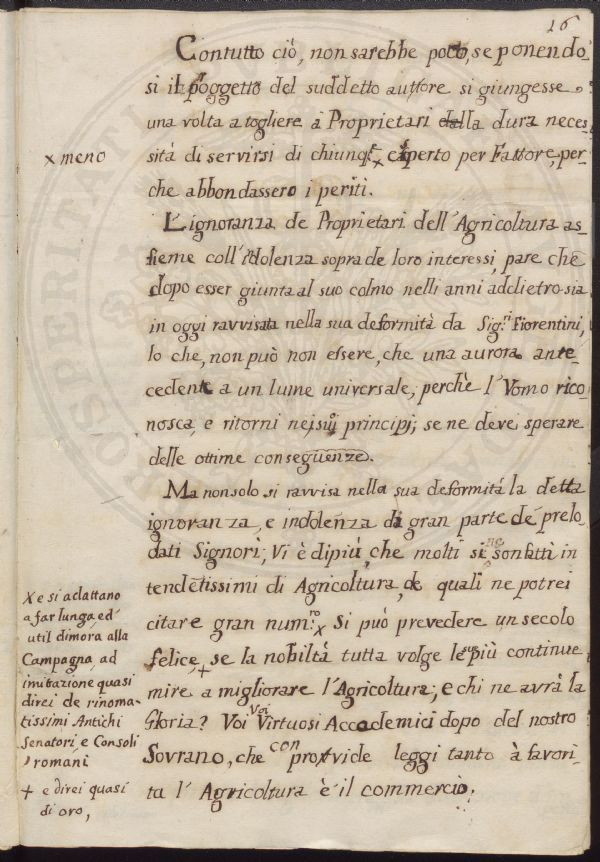 16
Contutto ciò, non sarebbe poco, se ponendo
si il poggetto del suddetto auttore si giungesse
una volta a togliere á Proprietari dalla dura neces
x meno
sitá di servirsi di chiunq.e x esperto per Fattore, per
che abbondassero i periti.
L'ignoranza de Proprietari dell'Agricoltura as
sieme coll'idolenza sopra de loro interessi, pare che
dopo esser giunta al suo colmo nelli anni addietro sia
in oggi ravvisata nella sua deformità da Sig.ri Fiorentini,
lo che, non può non essere, che una aurora ante
cedente a un lume universale, perchè l'Vomo rico
nosca, e ritorni nei suoi principj; se ne deve sperare
delle ottime conseguenze.
Ma non solo si ravvisa nella sua deformitá la detta
ignoranza, e indolenza di gran parte dé prelo
dati Signori; Vi è dipiú, che molti se ne son fatti in
tendētissimi di Agricoltura, de quali ne potrei
citare gran num.ro x Si può prevedere un secolo
X e si adattano
a far lunga, ed
util dimora alla
Campagna, ad
imitazione quasi
direi de rinoma-
tissimi Antichi
Senatori, e Consoli
romani
felice, + se la nobiltà tutta volge le sue più continue
mire a migliorare l'Agricoltura; e chi ne avrá la
Gloria? Voi Voi Virtuosi Accademici dopo del nostro
Sovrano, che con provvide leggi tanto à favori
+ e direi quasi
di oro,
ta l'Agricoltura è il commercio.